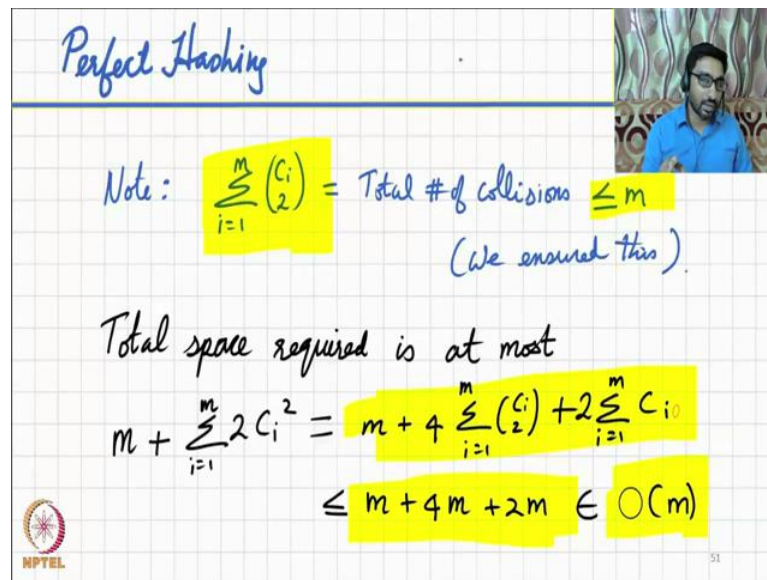 Perfect Hashing
Note: $\sum_{i=1}^{m} \binom{C_i}{2}$ = Total # of collisions ≤ m
(We ensured this).
Total space required is at most
$m + \sum_{i=1}^{m} 2C_i^2 = m + 4\sum_{i=1}^{m} \binom{C_i}{2} + 2\sum_{i=1}^{m} C_i$
≤ m + 4m + 2m ∈ O(m)
NPTEL
51